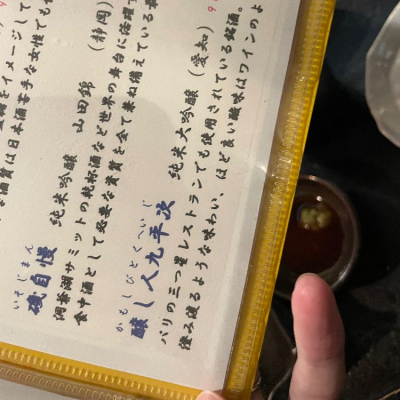 をイメージして
な酒質は日本酒苦手な女性でも
いそじまん
磯自慢 純米吟醸 山田錦 (静岡)
洞爺湖サミットの乾杯酒など世界の舞台に活躍
食中酒として必要な資質を全て兼ね備えている
かもしびとくへいじ
醸し人九平次 純米大吟醸 (愛知)
パリの三つ星レストランでも使用されている銘酒。
澄み渡るような味わい、ほど良い酸味はワインのよ